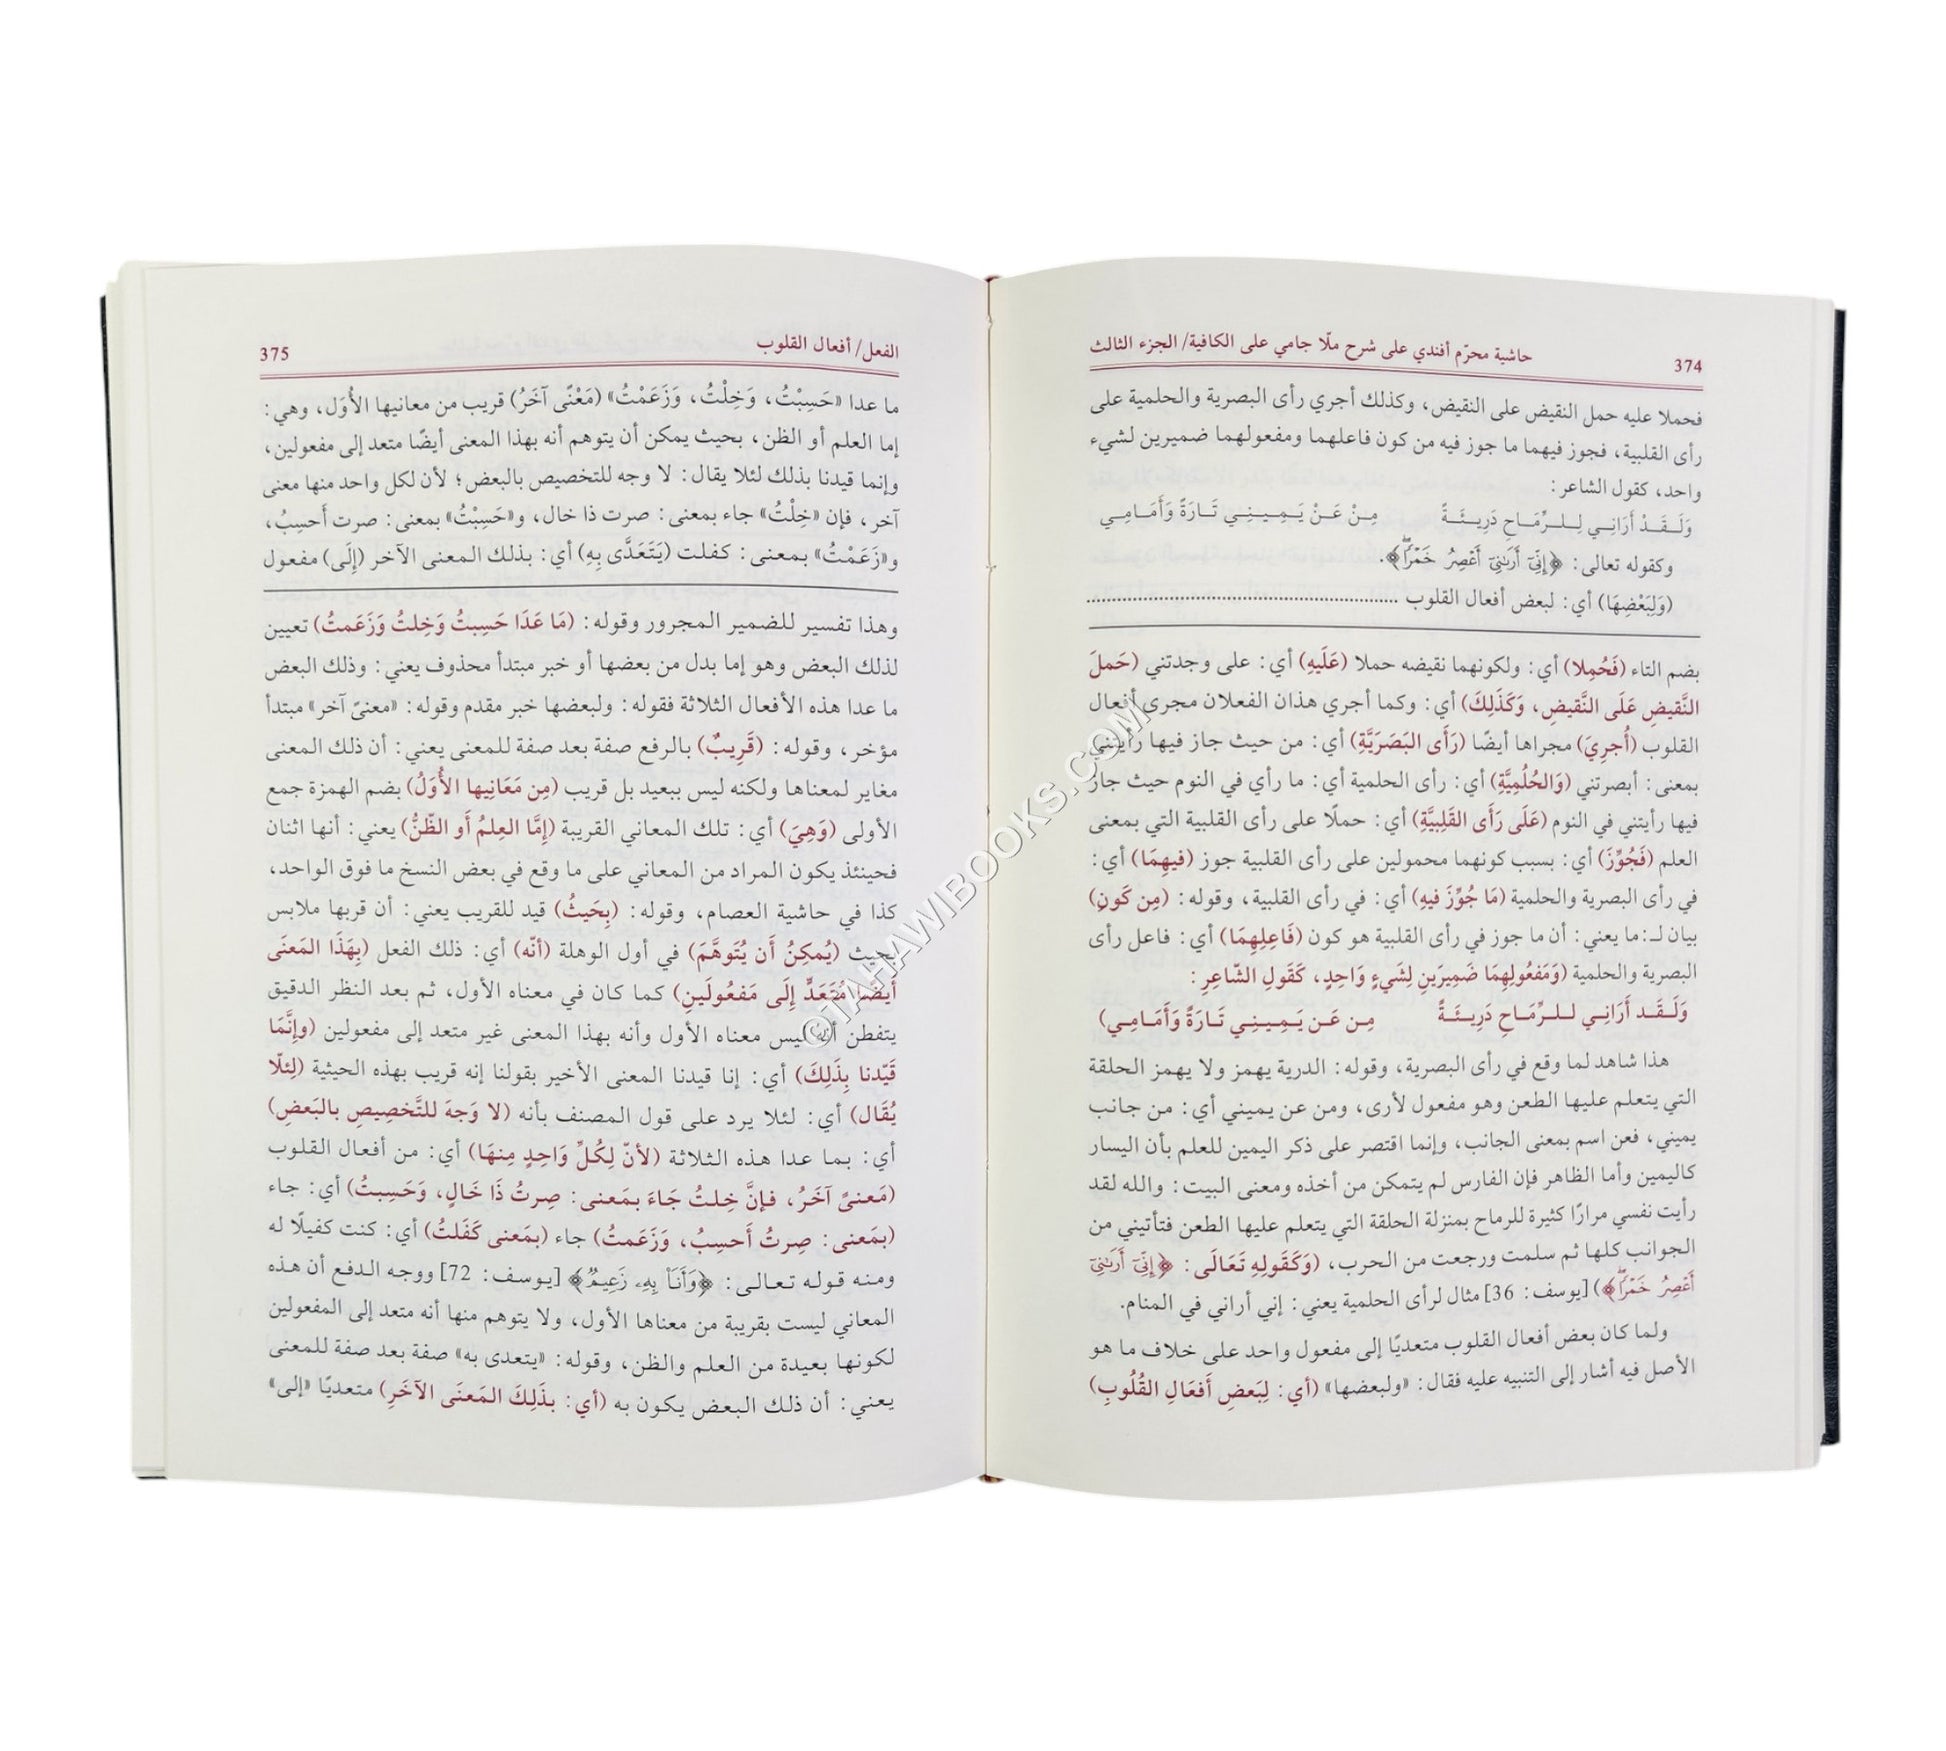 374
حاشية محرّم أفندي على شرح ملّا جامي على الكافية/ الجزء الثالث
فحملا عليه حمل النقيض على النقيض، وكذلك أجري رأى البصرية والحلمية على
رأى القلبية، فجوز فيهما ما جوز فيه من كون فاعلهما ومفعولهما ضميرين لشيء
واحد، كقول الشاعر:
وَلَـقَـدْ أَرَانِـي لِـلـرِّمَـاحِ دَرِيـئَـةً مِـنْ عَـنْ يَـمِـيـنِـي تَـارَةً وَأَمَـامِـي
وكقوله تعالى: ﴿إِنِّيٓ أَرَىٰنِيٓ أَعۡصِرُ خَمۡرٗاۖ﴾.
(وَلِبَعْضِهَا) أي: لبعض أفعال القلوب ..........
بضم التاء (فَحُمِلا) أي: ولكونهما نقيضه حملا (عَلَيهِ) أي: على وجدتني (حَملَ
النَّقيضِ عَلَى النَّقيضِ، وَكَذَلِكَ) أي: وكما أجري هذان الفعلان مجرى أفعال
القلوب (أُجرِيَ) مجراها أيضًا (رَأَى البَصَرَيَّةِ) أي: من حيث جاز فيها رأيتني
بمعنى: أبصرتني (وَالحُلُمِيَّةِ) أي: رأى الحلمية أي: ما رأي في النوم حيث جاز
فيها رأيتني في النوم (عَلَى رَأَى القَلِبيَّةِ) أي: حملًا على رأى القلبية التي بمعنى
العلم (فَجُوِّزَ) أي: بسبب كونهما محمولين على رأى القلبية جوز (فيهِمَا) أي:
في رأى البصرية والحلمية (مَا جُوِّزَ فيهِ) أي: في رأى القلبية، وقوله: (مِن كَونِ)
بيان لـ:ما يعني: أن ما جوز في رأى القلبية هو كون (فَاعِلِهِمَا) أي: فاعل رأى
البصرية والحلمية (وَمَفعُولِهِمَا ضَمِيرَينِ لِشَيءٍ وَاحِدٍ، كَقَولِ الشّاعِرِ:
وَلَـقَـد أَرَانِـي لـلـرِّمَـاحِ دَرِيـئَـةً مِـن عَـن يَـمِـيـنِـي تَـارَةً وَأَمَـامِـي)
هذا شاهد لما وقع في رأى البصرية، وقوله: الدرية يهمز ولا يهمز الحلقة
التي يتعلم عليها الطعن وهو مفعول لأرى، ومن عن يميني أي: من جانب
يميني، فعن اسم بمعنى الجانب، وإنما اقتصر على ذكر اليمين للعلم بأن اليسار
كاليمين وأما الظاهر فإن الفارس لم يتمكن من أخذه ومعنى البيت: والله لقد
رأيت نفسي مرارًا كثيرة للرماح بمنزلة الحلقة التي يتعلم عليها الطعن فتأتيني من
الجوانب كلها ثم سلمت ورجعت من الحرب، (وَكَقَولِهِ تَعَالَى: ﴿إِنِّيٓ أَرَىٰنِيٓ
أَعۡصِرُ خَمۡرٗاۖ﴾) [يوسف: 36] مثال لرأى الحلمية يعني: إني أراني في المنام.
ولما كان بعض أفعال القلوب متعديًا إلى مفعول واحد على خلاف ما هو
الأصل فيه أشار إلى التنبيه عليه فقال: «ولبعضها» (أي: لِبَعضِ أَفعَالِ القُلُوبِ)
الفعل/ أفعال القلوب
375
ما عدا «حَسِبْتُ، وَخِلْتُ، وَزَعَمْتُ» (مَعْنًى آخَرُ) قريب من معانيها الأُوَل، وهي:
إما العلم أو الظن، بحيث يمكن أن يتوهم أنه بهذا المعنى أيضًا متعد إلى مفعولين،
وإنما قيدنا بذلك لئلا يقال: لا وجه للتخصيص بالبعض؛ لأن لكل واحد منها معنى
آخر، فإن «خِلْتُ» جاء بمعنى: صرت ذا خال، و«حَسِبْتُ» بمعنى: صرت أَحسِبُ،
و«زَعَمْتُ» بمعنى: كفلت (يَتَعَدَّى بِهِ) أي: بذلك المعنى الآخر (إِلَى) مفعول
وهذا تفسير للضمير المجرور وقوله: (مَا عَدَا حَسِبتُ وَخِلتُ وَزَعَمتُ) تعيين
لذلك البعض وهو إما بدل من بعضها أو خبر مبتدأ محذوف يعني: وذلك البعض
ما عدا هذه الأفعال الثلاثة فقوله: ولبعضها خبر مقدم وقوله: «معنىً آخر» مبتدأ
مؤخر، وقوله: (قَرِيبٌ) بالرفع صفة بعد صفة للمعنى يعني: أن ذلك المعنى
مغاير لمعناها ولكنه ليس ببعيد بل قريب (مِن مَعَانِيها الأُوَلُ) بضم الهمزة جمع
الأولى (وَهِيَ) أي: تلك المعاني القريبة (إمَّا العِلمُ أَو الظّنُّ) يعني: أنها اثنان
فحينئذ يكون المراد من المعاني على ما وقع في بعض النسخ ما فوق الواحد،
كذا في حاشية العصام، وقوله: (بِحَيثُ) قيد للقريب يعني: أن قربها ملابس
بحيث (يُمكِنُ أَن يُتَوهَّمَ) في أول الوهلة (أنّه) أي: ذلك الفعل (بِهَذَا المَعنَى
أَيضًا مُتَعَدٍّ إِلَى مَفعُولَينِ) كما كان في معناه الأول، ثم بعد النظر الدقيق
يتفطن أنه ليس معناه الأول وأنه بهذا المعنى غير متعد إلى مفعولين (وإنَّمَا
قَيّدنا بِذَلِكَ) أي: إنا قيدنا المعنى الأخير بقولنا إنه قريب بهذه الحيثية (لِئلّا
يُقَال) أي: لئلا يرد على قول المصنف بأنه (لا وَجهَ للتَّخصِيصِ بالبَعضِ)
أي: بما عدا هذه الثلاثة (لأنّ لِكُلِّ وَاحِدٍ مِنهَا) أي: من أفعال القلوب
(مَعنىً آخَرُ، فـإنَّ خِلتُ جَاءَ بمَعنى: صِرتُ ذَا خَالٍ، وَحَسِبتُ) أي: جاء
(بمَعنى: صِرتُ أَحسِبُ، وَزَعَمتُ) جاء (بمَعنى كَفَلتُ) أي: كنت كفيلًا له
ومنه قوله تعالى: ﴿وَأَنَا۠ بِهِۦ زَعِيمٞ﴾ [يوسف: 72] ووجه الدفع أن هذه
المعاني ليست بقريبة من معناها الأول، ولا يتوهم منها أنه متعد إلى المفعولين
لكونها بعيدة من العلم والظن، وقوله: «يتعدى به» صفة بعد صفة للمعنى
يعني: أن ذلك البعض يكون به (أي: بذَلِكَ المَعنَى الآخَرِ) متعديًا «إلى»
©TAHAWIBOOKS.COM